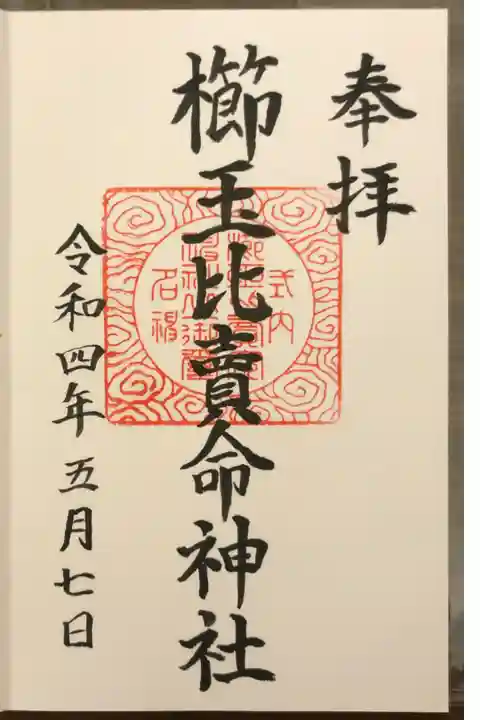 奉拝
櫛玉比賣命神社
式内
名神
令和四年五月七日